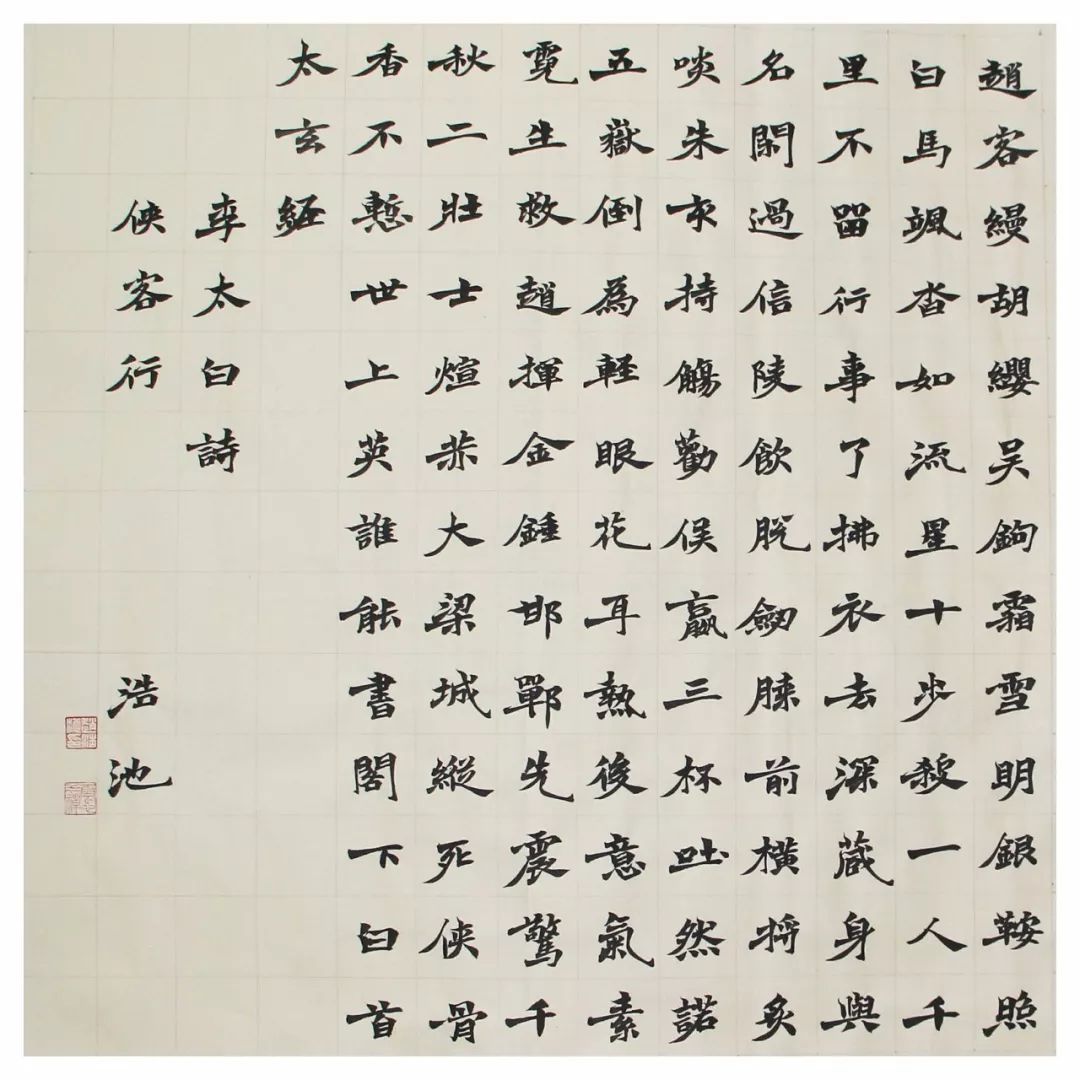 趙客縵胡纓吳鉤霜雪明銀鞍照
白馬颯沓如流星十步殺一人千
里不留行事了拂衣去深藏身與
名閑過信陵飲脫劒膝前橫將炙
啖朱亥持觴勸侯嬴三杯吐然諾
五嶽倒為輕眼花耳熱後意氣素
霓生救趙揮金錘邯鄲先震驚千
秋二壯士煊大梁城縱死俠骨
香不慙世上英誰能書閣下白首
太玄經
李太白詩
俠客行 浩池